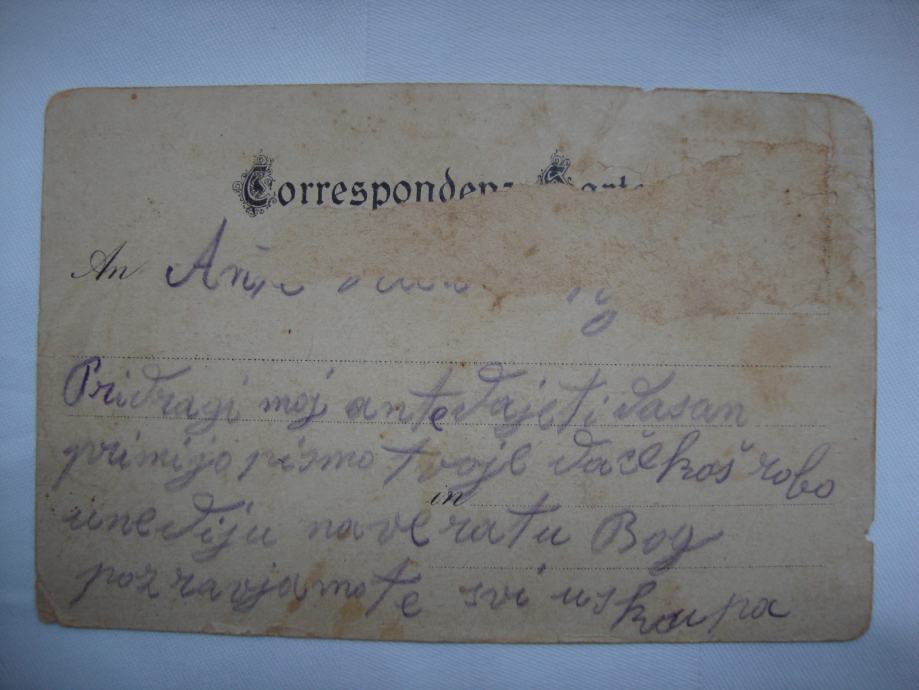 Correspondenz-Karte
An Ante
Pridragi moj ante dajeti dasan
primijo pismo tvoje dače koš robo
in
unediju na veratu Bog
pozravjamote svi uskupa